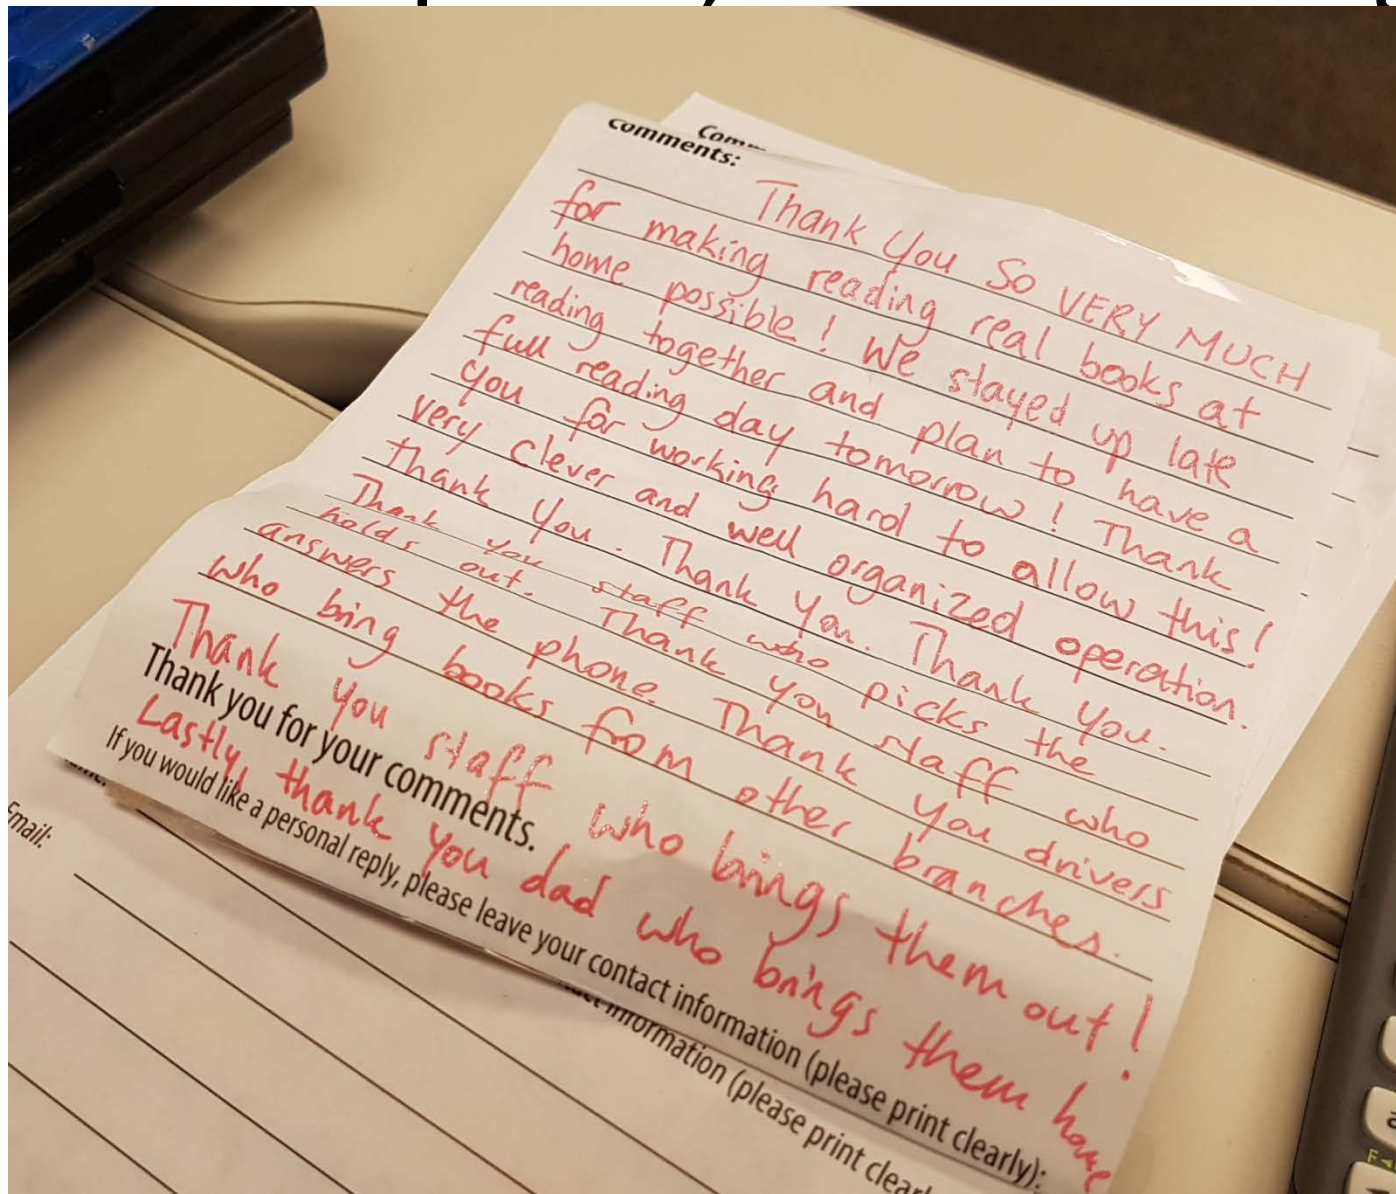 Comm
Comments:
Thank You So VERY MUCH
for making reading real books at
home possible! We stayed up late
reading together and plan to have a
full reading day tomorrow! Thank
you for working hard to allow this!
Very clever and well organized operation.
Thank you. Thank you. Thank you.
Thank you staff who picks the
holds out. Thank you staff who
answers the phone. Thank you drivers
who bring books from other branches.
Thank you staff who brings them out!
Thank you for your comments.
Lastly, thank you dad who brings them home
If you would like a personal reply, please leave your contact information (please print clearly):
information (please print clearl
Email: